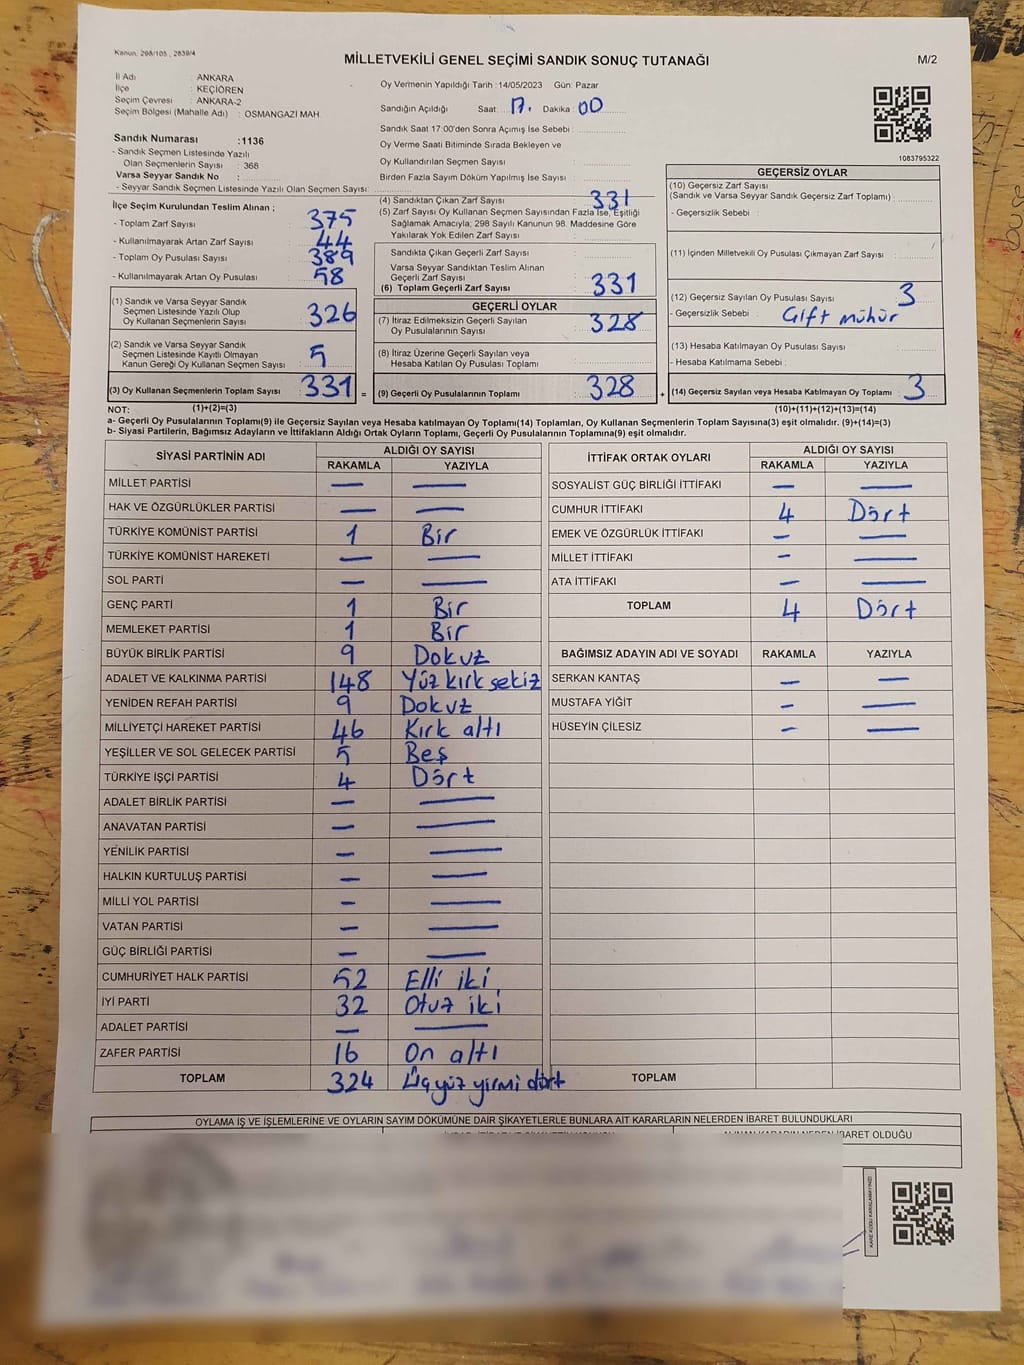 Kanun, 298/105 , 2839/4
MİLLETVEKİLİ GENEL SEÇİMİ SANDIK SONUÇ TUTANAĞI
M/2
İl Adı : ANKARA
İlçe : KEÇİÖREN
Seçim Çevresi : ANKARA-2
Seçim Bölgesi (Mahalle Adı) : OSMANGAZİ MAH.
Sandık Numarası :1136
- Sandık Seçmen Listesinde Yazılı
Olan Seçmenlerin Sayısı : 368
Varsa Seyyar Sandık No :
- Seyyar Sandık Seçmen Listesinde Yazılı Olan Seçmen Sayısı:
Oy Vermenin Yapıldığı Tarih :14/05/2023 Gün: Pazar
Sandığın Açıldığı Saat: 17. Dakika : 00
Sandık Saat 17:00'den Sonra Açımış İse Sebebi :
Oy Verme Saati Bitiminde Sırada Bekleyen ve
Oy Kullandırılan Seçmen Sayısı :
Birden Fazla Sayım Döküm Yapılmış İse Sayısı :
1083795322
İlçe Seçim Kurulundan Teslim Alınan ;
- Toplam Zarf Sayısı : 375
- Kullanılmayarak Artan Zarf Sayısı : 44
- Toplam Oy Pusulası Sayısı : 389
- Kullanılmayarak Artan Oy Pusulası : 58
(1) Sandık ve Varsa Seyyar Sandık
Seçmen Listesinde Yazılı Olup
Oy Kullanan Seçmenlerin Sayısı : 326
(2) Sandık ve Varsa Seyyar Sandık
Seçmen Listesinde Kayıtlı Olmayan
Kanun Gereği Oy Kullanan Seçmen Sayısı : 5
(3) Oy Kullanan Seçmenlerin Toplam Sayısı : 331 =
(4) Sandıktan Çıkan Zarf Sayısı : 331
(5) Zarf Sayısı Oy Kullanan Seçmen Sayısından Fazla İse, Eşitliği
Sağlamak Amacıyla; 298 Sayılı Kanunun 98. Maddesine Göre
Yakılarak Yok Edilen Zarf Sayısı :
Sandıkta Çıkan Geçerli Zarf Sayısı :
Varsa Seyyar Sandıktan Teslim Alınan
Geçerli Zarf Sayısı :
(6) Toplam Geçerli Zarf Sayısı : 331
GEÇERLİ OYLAR
(7) İtiraz Edilmeksizin Geçerli Sayılan
Oy Pusulalarının Sayısı : 328
(8) İtiraz Üzerine Geçerli Sayılan veya
Hesaba Katılan Oy Pusulası Toplamı :
(9) Geçerli Oy Pusulalarının Toplamı : 328 +
GEÇERSİZ OYLAR
(10) Geçersiz Zarf Sayısı
(Sandık ve Varsa Seyyar Sandık Geçersiz Zarf Toplamı) :
- Geçersizlik Sebebi :
(11) İçinden Milletvekili Oy Pusulası Çıkmayan Zarf Sayısı :
(12) Geçersiz Sayılan Oy Pusulası Sayısı : 3
- Geçersizlik Sebebi : Çift mühür
(13) Hesaba Katılmayan Oy Pusulası Sayısı :
- Hesaba Katılmama Sebebi :
(14) Geçersiz Sayılan veya Hesaba Katılmayan Oy Toplamı : 3
NOT: (1)+(2)=(3) (10)+(11)+(12)+(13)=(14)
a- Geçerli Oy Pusulalarının Toplamı(9) ile Geçersiz Sayılan veya Hesaba katılmayan Oy Toplamı(14) Toplamları, Oy Kullanan Seçmenlerin Toplam Sayısına(3) eşit olmalıdır. (9)+(14)=(3)
b- Siyasi Partilerin, Bağımsız Adayların ve İttifakların Aldığı Ortak Oyların Toplamı, Geçerli Oy Pusulalarının Toplamına(9) eşit olmalıdır.
SİYASİ PARTİNİN ADI ALDIĞI OY SAYISI
RAKAMLA YAZIYLA
MİLLET PARTİSİ — —
HAK VE ÖZGÜRLÜKLER PARTİSİ — —
TÜRKİYE KOMÜNİST PARTİSİ 1 Bir
TÜRKİYE KOMÜNİST HAREKETİ — —
SOL PARTİ — —
GENÇ PARTİ 1 Bir
MEMLEKET PARTİSİ 1 Bir
BÜYÜK BİRLİK PARTİSİ 9 Dokuz
ADALET VE KALKINMA PARTİSİ 148 Yüz kırk sekiz
YENİDEN REFAH PARTİSİ 9 Dokuz
MİLLİYETÇİ HAREKET PARTİSİ 46 Kırk altı
YEŞİLLER VE SOL GELECEK PARTİSİ 5 Beş
TÜRKİYE İŞÇİ PARTİSİ 4 Dört
ADALET BİRLİK PARTİSİ — —
ANAVATAN PARTİSİ — —
YENİLİK PARTİSİ — —
HALKIN KURTULUŞ PARTİSİ — —
MİLLİ YOL PARTİSİ — —
VATAN PARTİSİ — —
GÜÇ BİRLİĞİ PARTİSİ — —
CUMHURİYET HALK PARTİSİ 52 Elli iki
İYİ PARTİ 32 Otuz iki
ADALET PARTİSİ — —
ZAFER PARTİSİ 16 On altı
TOPLAM 324 Üçyüz yirmi dört
İTTİFAK ORTAK OYLARI ALDIĞI OY SAYISI
RAKAMLA YAZIYLA
SOSYALİST GÜÇ BİRLİĞİ İTTİFAKI — —
CUMHUR İTTİFAKI 4 Dört
EMEK VE ÖZGÜRLÜK İTTİFAKI — —
MİLLET İTTİFAKI — —
ATA İTTİFAKI — —
TOPLAM 4 Dört
BAĞIMSIZ ADAYIN ADI VE SOYADI RAKAMLA YAZIYLA
SERKAN KANTAŞ — —
MUSTAFA YİĞİT — —
HÜSEYİN ÇİLESİZ — —
TOPLAM
OYLAMA İŞ VE İŞLEMLERİNE VE OYLARIN SAYIM DÖKÜMÜNE DAİR ŞİKAYETLERLE BUNLARA AİT KARARLARIN NELERDEN İBARET BULUNDUKLARI
ALINAN KARARIN NEDEN İBARET OLDUĞU
KARE KODU KARALAMAYINIZ!